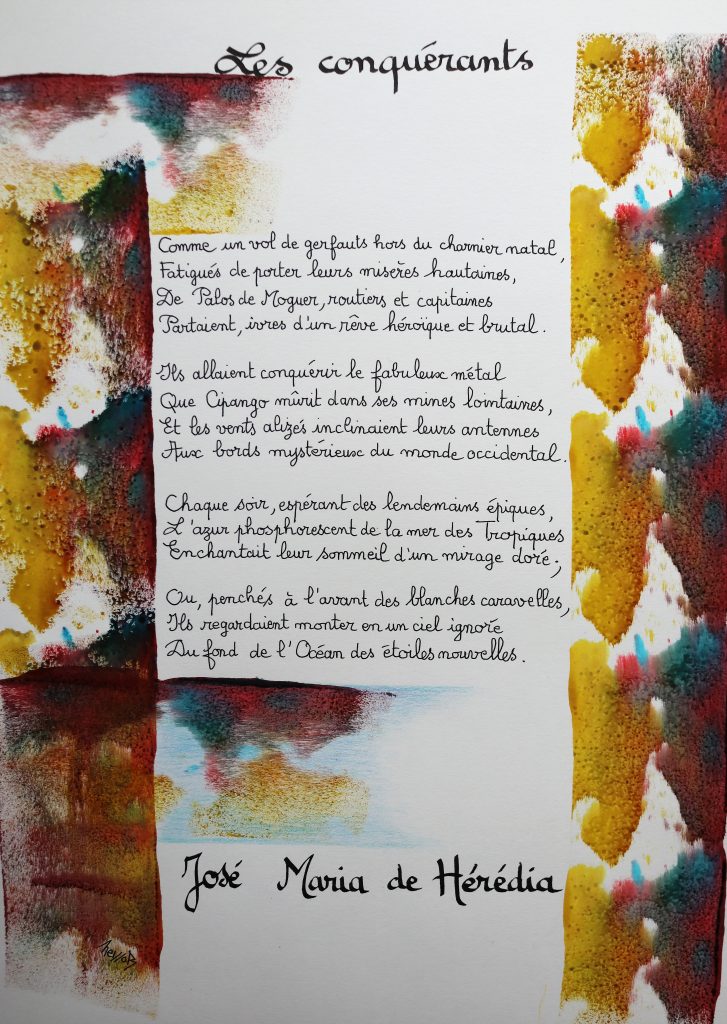 Les conquérants
Comme un vol de gerfauts hors du charnier natal,
Fatigués de porter leurs misères hautaines,
De Palos de Moguer, routiers et capitaines
Partaient, ivres d'un rêve héroïque et brutal.
Ils allaient conquérir le fabuleux métal
Que Cipango mûrit dans ses mines lointaines,
Et les vents alizés inclinaient leurs antennes
Aux bords mystérieux du monde occidental.
Chaque soir, espérant des lendemains épiques,
L'azur phosphorescent de la mer des Tropiques
Enchantait leur sommeil d'un mirage doré;
Ou, penchés à l'avant des blanches caravelles,
Ils regardaient monter en un ciel ignoré
Du fond de l'Océan des étoiles nouvelles.
José Maria de Hérédia